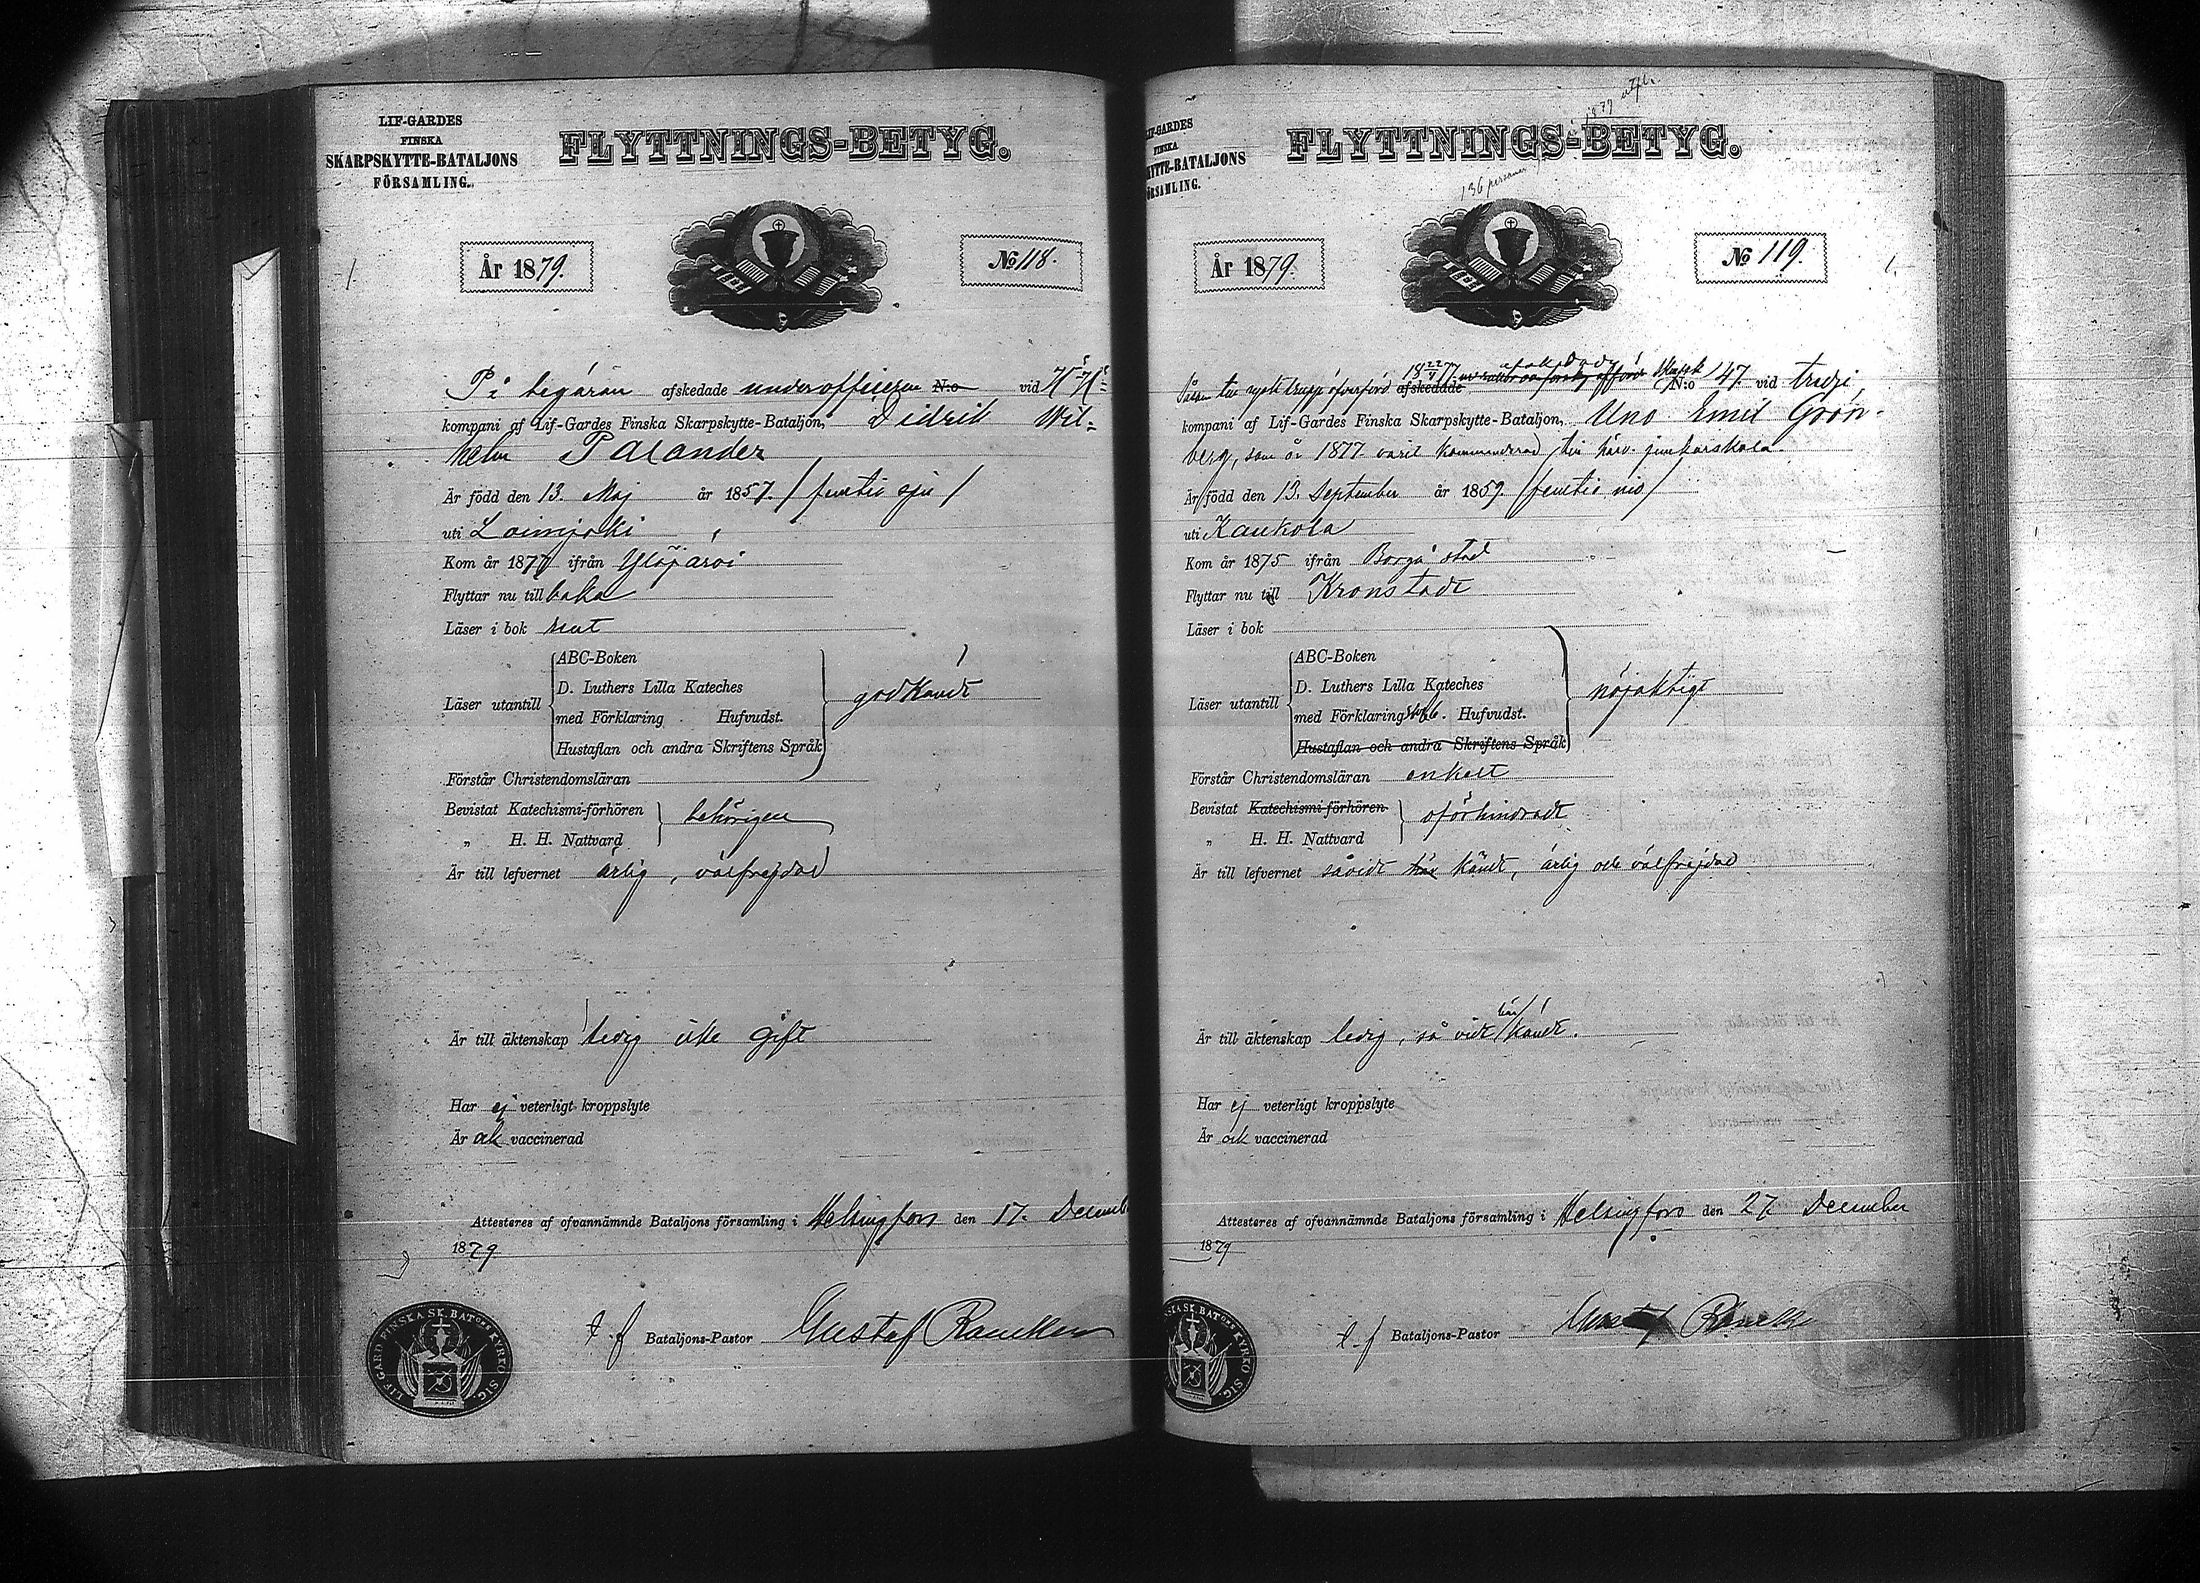 LIF-GARDES
FINSKA
SKARPSKYTTE-BATALJONS
FÖRSAMLING.
FLYTTNINGS-BETYG.
År 1879.
No 118.
På begäran afskedade underofficeren N:o vid
kompani af Lif-Gardes Finska Skarpskytte-Bataljon, Didrik Wil-
helm Palander
Är född den 13. Maj år 1857. / femtio sju /
uti Loimjoki
Kom år 1877 ifrån Ylöjärvi
Flyttar nu till baka
Läser i bok rent
ABC-Boken
D. Luthers Lilla Kateches
Läser utantill
med Förklaring Hufvudst.
Hustaflan och andra Skriftens Språk
godkändt
Förstår Christendomsläran
Bevistat Katechismi-förhören
„ H. H. Nattvard
behörigen
Är till lefvernet ärlig, välfrejdad
Är till äktenskap ledig icke gift
Har ej veterligt kroppslyte
Är ock vaccinerad
Attesteres af ofvannämnde Bataljons församling i Helsingfors den 17. Decemb
1879
t. f Bataljons-Pastor Gustaf Rancken
LIF.GARD.FINSKA SK.BATONS KYRKO SIG.
LIF-GARDES
FINSKA
KYTTE-BATALJONS
ÖRSAMLING.
1879
FLYTTNINGS-BETYG.
136 personer
År 1879.
No 119.
afskedade N:o 147. vid tredje
kompani af Lif-Gardes Finska Skarpskytte-Bataljon, Uno Emil Grön-
berg, som år 1877 varit kommenderad till härv. junkarskola.
Är född den 13. September år 1859. / femtio nio /
uti Kaukola
Kom år 1875 ifrån Borgå stad
Flyttar nu till Kronstadt
Läser i bok
ABC-Boken
D. Luthers Lilla Kateches
Läser utantill
med Förklaring Hufvudst.
Hustaflan och andra Skriftens Språk
nöjaktigt
Förstår Christendomsläran enkelt
Bevistat Katechismi-förhören
„ H. H. Nattvard
oförhindradt
Är till lefvernet såvidt här kändt, ärlig och välfrejdad
Är till äktenskap ledig, så vidt här kändt.
Har ej veterligt kroppslyte
Är ock vaccinerad
Attesteres af ofvannämnde Bataljons församling i Helsingfors den 27 December
1879
t. f Bataljons-Pastor Gustaf Rancke
SKA SK.BATONS KYRKO SIG.